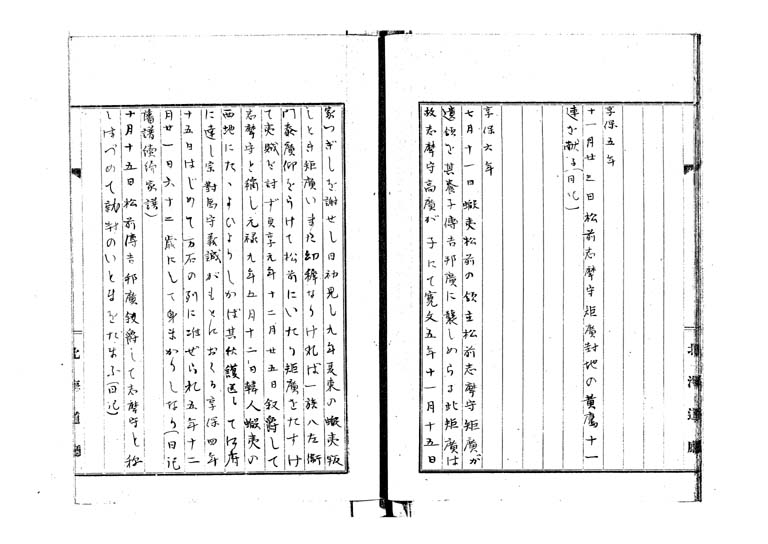 享保五年
十一月廿三日松前志摩守矩廣封地の黄鷹十一
連を献る(日記)
享保六年
七月十一日蝦夷松前の領主松前志摩守矩廣が
遺領を其養子傳吉邦廣に襲しめらる此矩廣は
故志摩守高廣が子にて寛文五年十一月十五日
家つぎしを謝せし日初見し九年夏東の蝦夷叛
しとき矩廣いまだ幼稚なりければ一族八左衛
門泰廣仰をうけて松前にいたり矩廣をたすけ
て夷賊を討ず貞享元年十二月廿五日叙爵して
志摩守と稱し元禄九年五月十二日韓人蝦夷の
西地にたゞよひよりしかば其伏護送して江府
に達し宗對馬守義誠がもとにおくる享保四年
十五日はじめて万石の列に准ぜられ五年十二
月廿一日六十二歳にして身まかりしなり(日記
藩譜續綺家譜)
十月十五日松前傳吉邦廣叙爵して志摩守と稱
しはづめて就封のいとまをたまふ(日記)
北海道廳
北海道廳